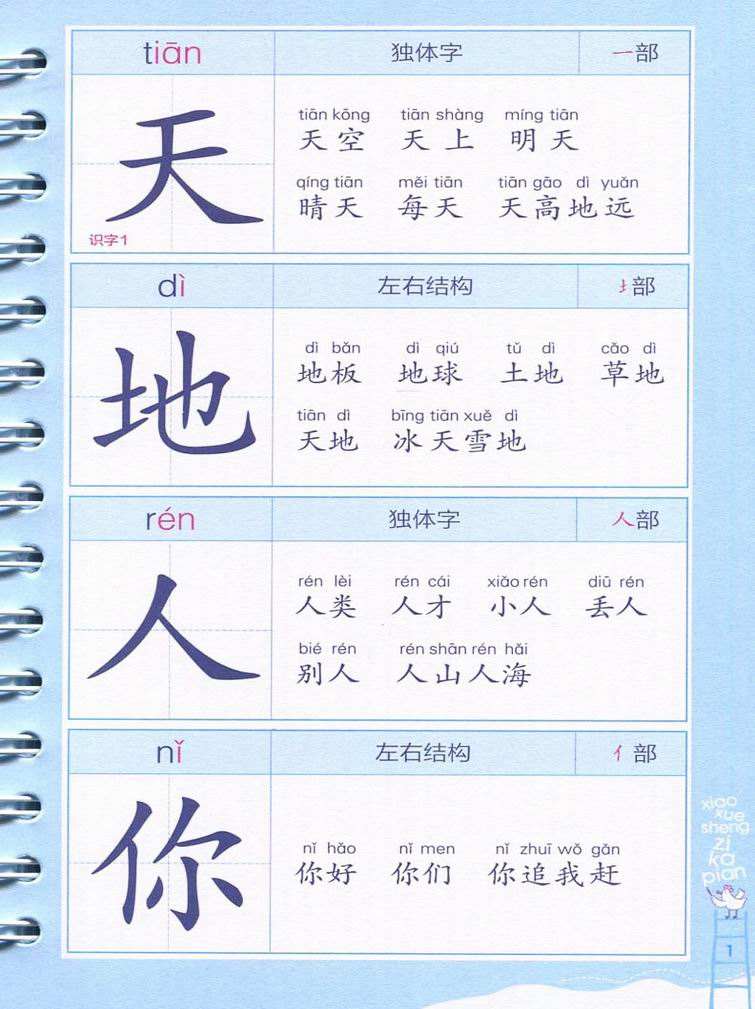 tiān 独体字 一部
天
tiān kōng tiān shàng míng tiān
天空 天上 明天
qíng tiān měi tiān tiān gāo dì yuǎn
晴天 每天 天高地远
识字1
dì 左右结构 土部
地
dì bǎn dì qiú tǔ dì cǎo dì
地板 地球 土地 草地
tiān dì bīng tiān xuě dì
天地 冰天雪地
rén 独体字 人部
人
rén lèi rén cái xiǎo rén diū rén
人类 人才 小人 丢人
bié rén rén shān rén hǎi
别人 人山人海
nǐ 左右结构 亻部
你
nǐ hǎo nǐ men nǐ zhuī wǒ gǎn
你好 你们 你追我赶
xiao
xue
sheng
zi
ka
pian
1